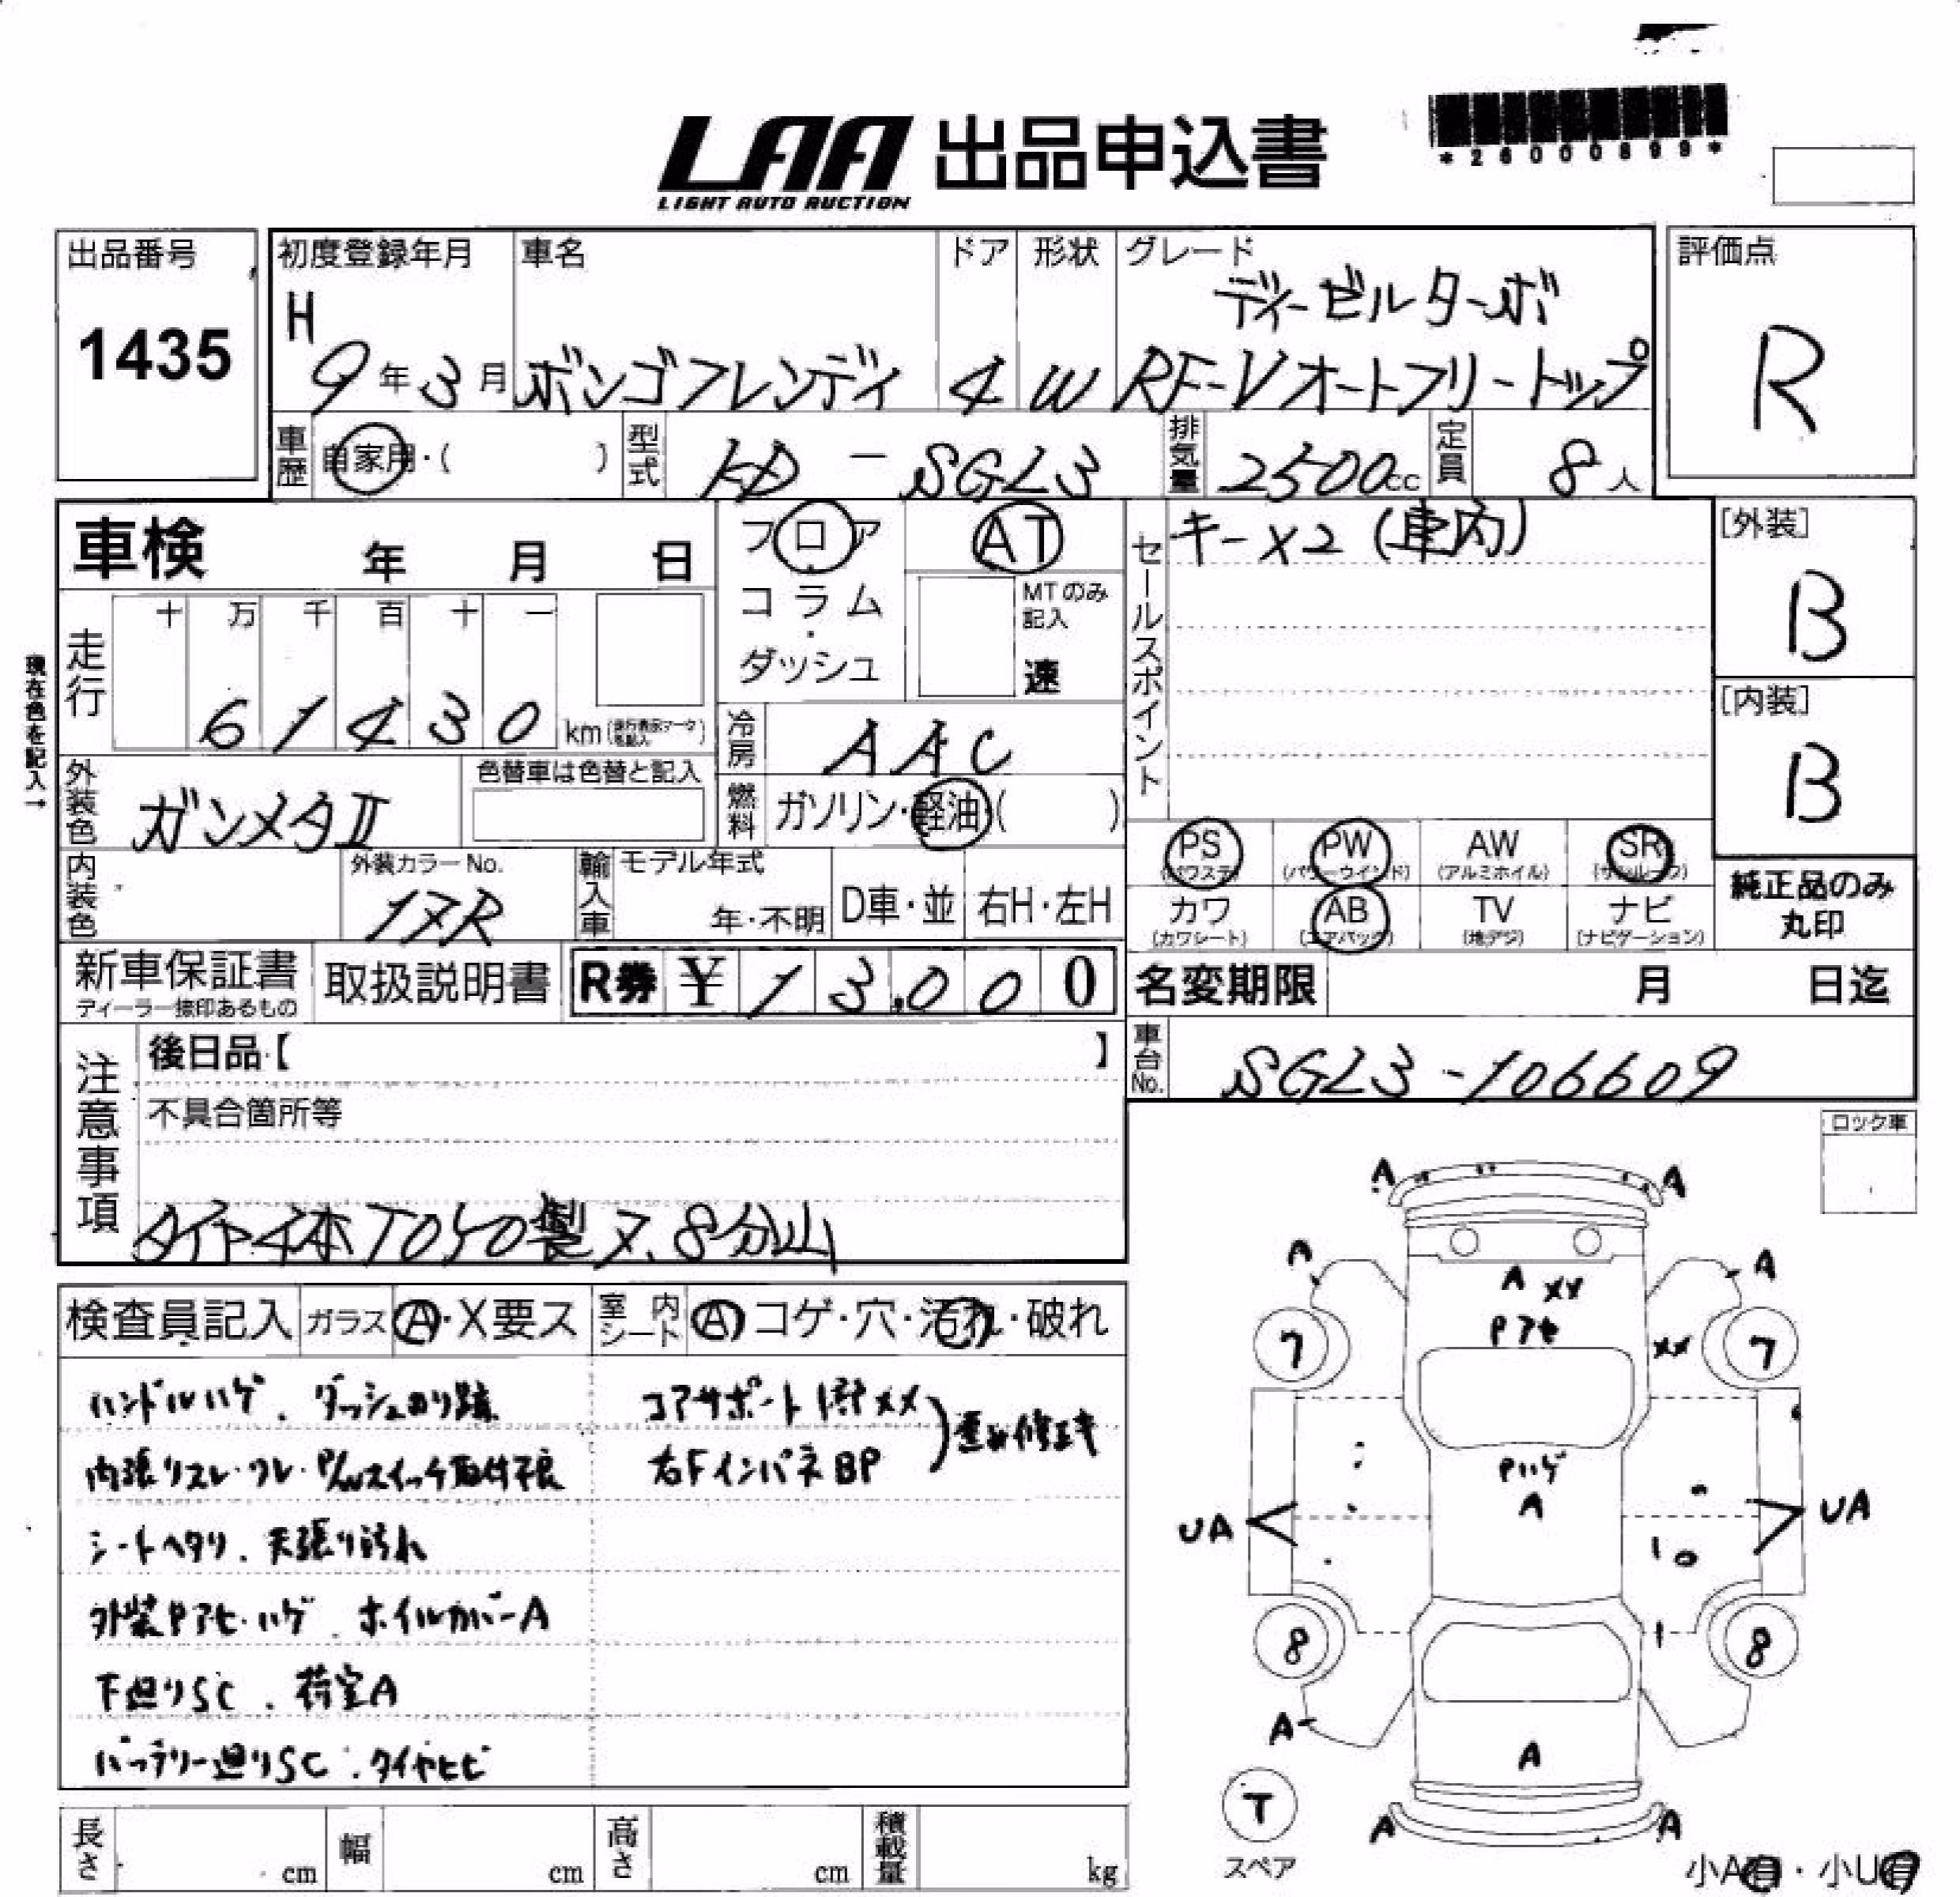 LAA 出品申込書
LIGHT AUTO AUCTION
*26000899*
出品番号
1435
初度登録年月
H
9年3月
車名
ボンゴフレンディ
ドア
4
形状
W
グレード
ディーゼルターボ
RF-V オートフリートップ
評価点
R
車歴 自家用・( )
型式 KD - SGL3
排気量 2500cc
定員 8人
車検 年 月 日
フロア
コラム
・
ダッシュ
AT
MTのみ
記入
速
セールスポイント
キー×2 (車内)
[外装]
B
[内装]
B
現在色を記入→
走行
十 万 千 百 十 一
6 1 4 3 0 km
冷房 AAC
外装色 ガンメタⅡ
色替車は色替と記入
燃料 ガソリン・軽油・( )
PS (パワステ)
PW (パワーウインド)
AW (アルミホイル)
SR (サンルーフ)
カワ (カワシート)
AB (エアバック)
TV (地デジ)
ナビ (ナビゲーション)
純正品のみ
丸印
内装色
外装カラーNo.
17R
輸入車
モデル年式
年・不明
D車・並
右H・左H
新車保証書
ディーラー捺印あるもの
取扱説明書
R券 ¥ 13,000
名変期限 月 日迄
車台No. SGL3-106609
注意事項
後日品【 】
不具合箇所等
タイヤ4本TOYO製 7、8分山
ロック車
検査員記入
ガラス A・X要ス
室内シート A コゲ・穴・汚れ・破れ
ハンドルハゲ、ダッシュのり跡
内張りスレ・ワレ・P/Wスイッチ取付不良
シートヘタリ、天張り汚れ
外装Pアセ・ハゲ、ホイルカバーA
下廻りSC、荷室A
バッテリー廻りSC、タイヤヒビ
コアサポート
右FインパネBP
A A
A A
A XX
Pアセ
7 XX 7
Pハゲ
A
UA UA
8 8
A
A
T
スペア
A A
長さ cm
幅 cm
高さ cm
積載量 kg
小A有・小U有